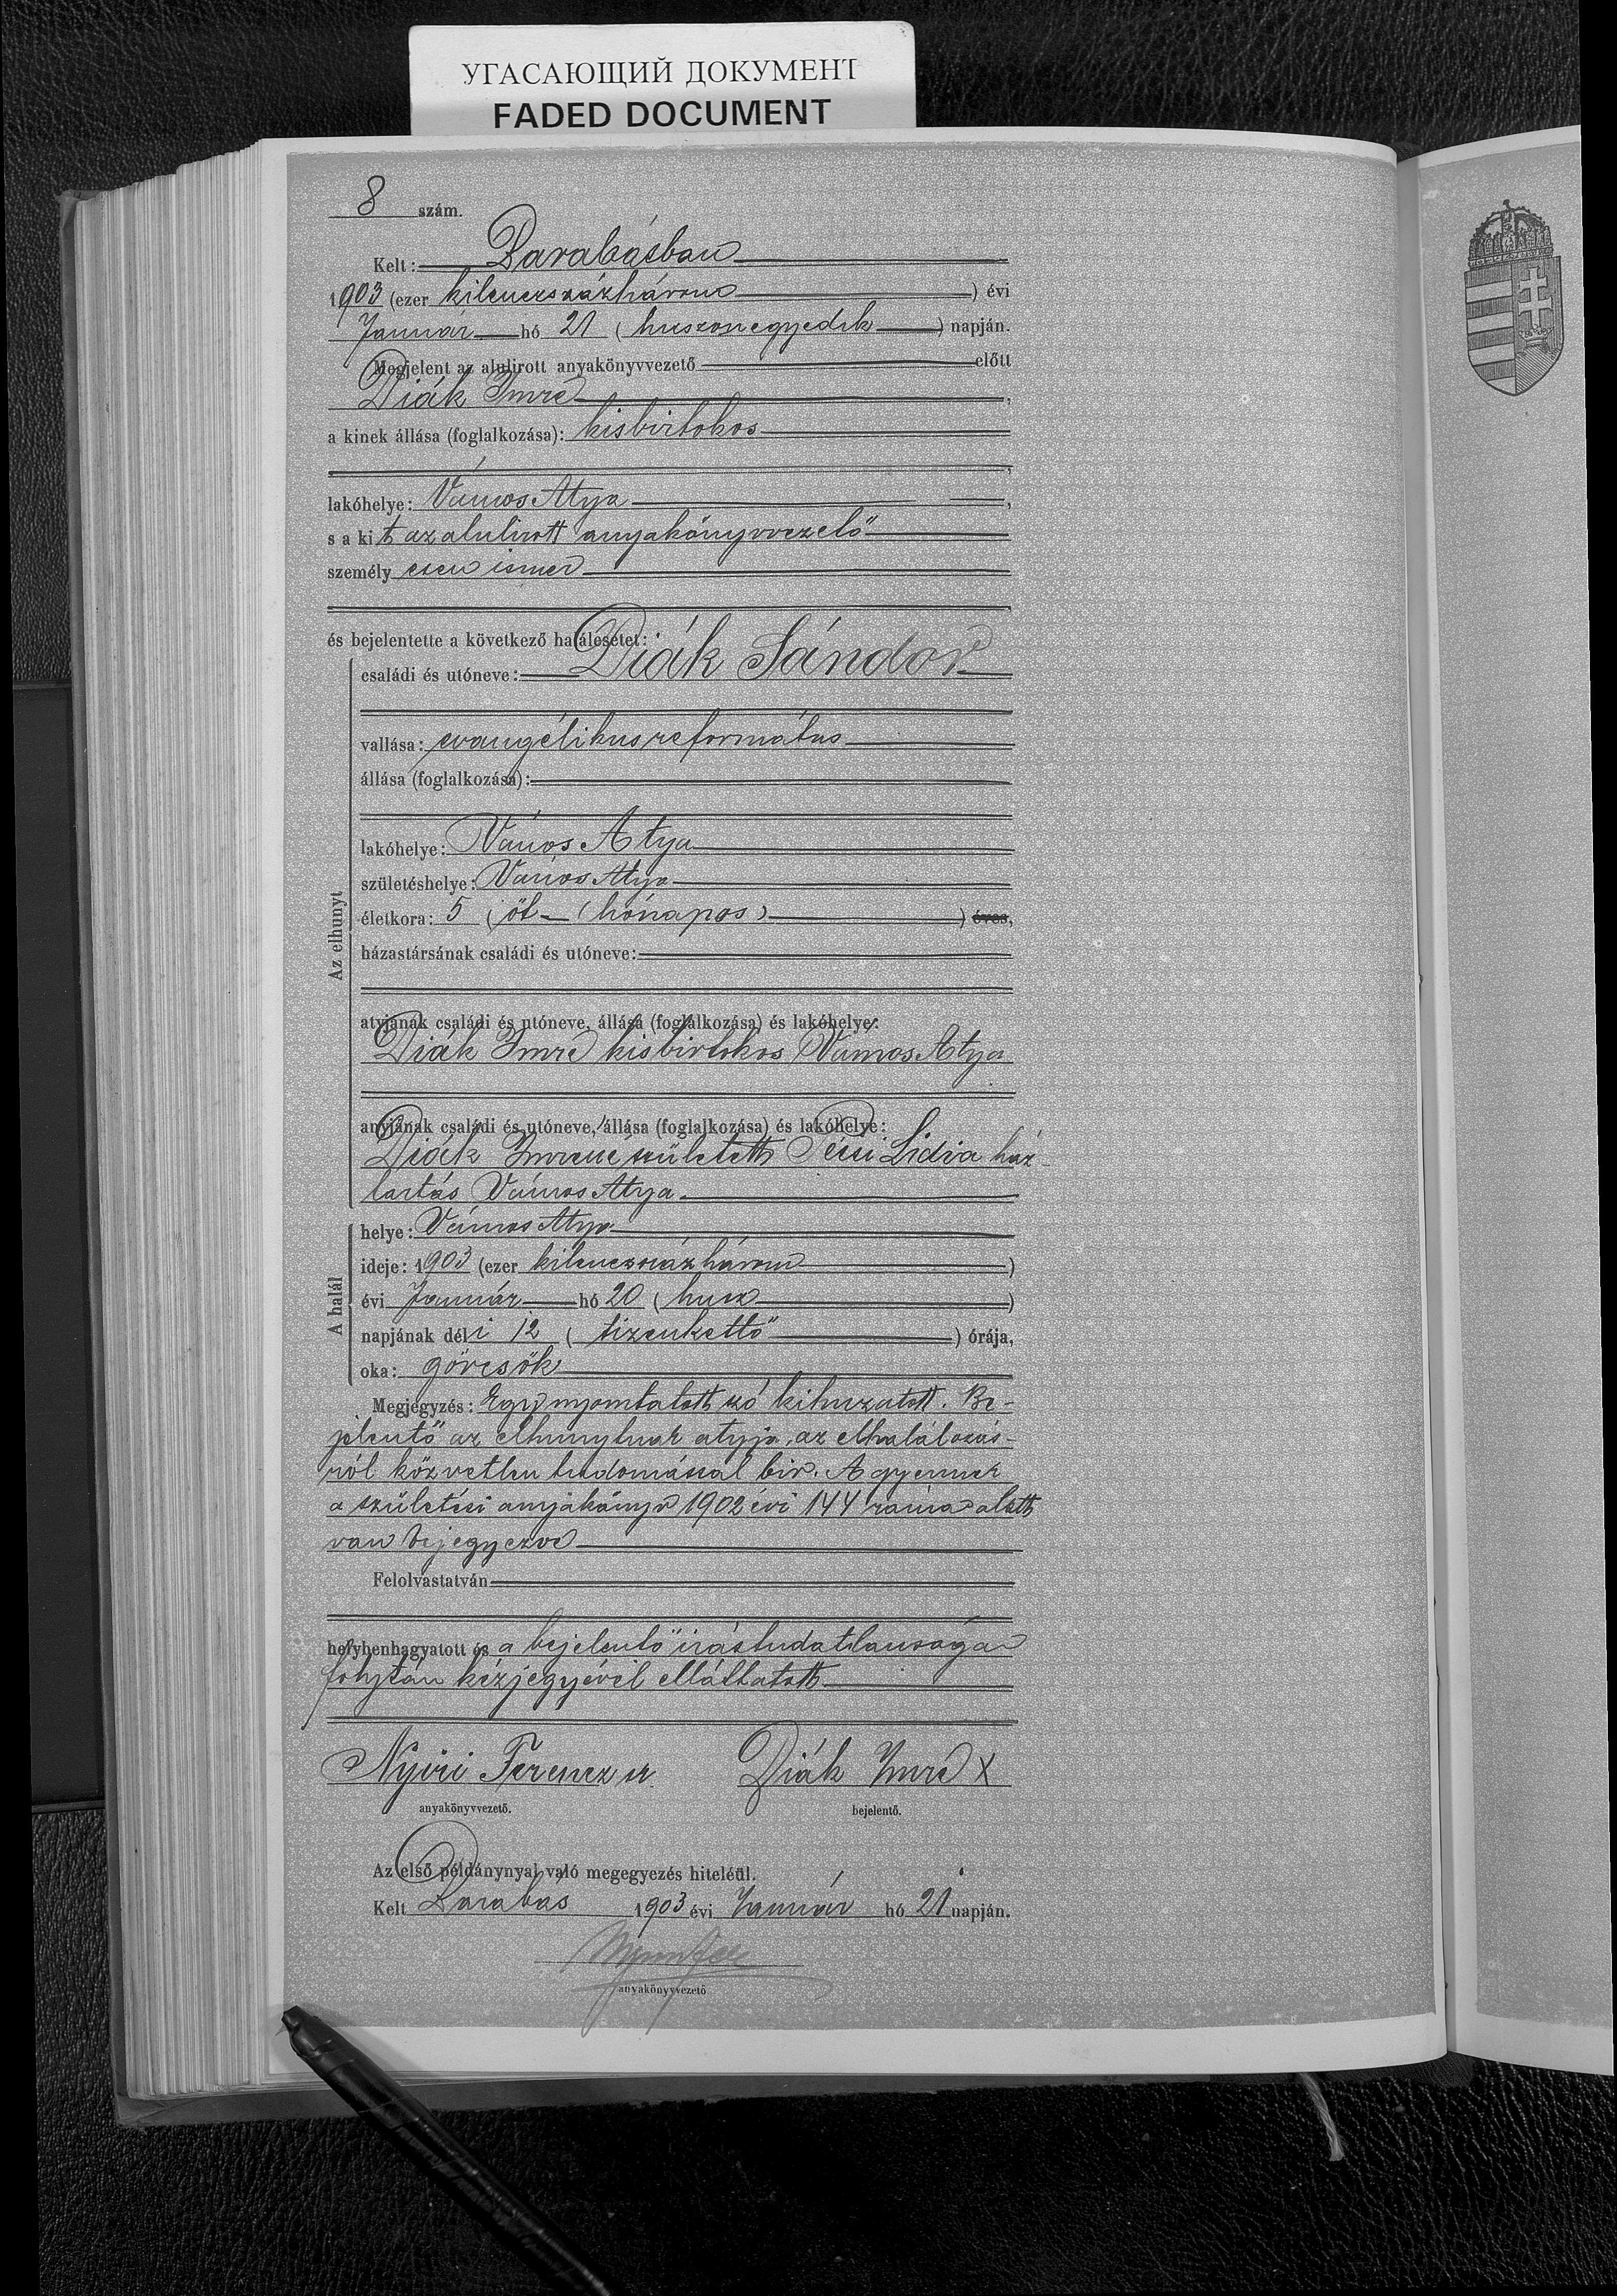 УГАСАЮЩИЙ ДОКУМЕНТ
FADED DOCUMENT
8 szám.
Kelt: Barabásban
1903 (ezer kilenczszázhárom) évi
Január hó 21 (huszonegyedik) napján.
Megjelent az alulirott anyakönyvvezető előtt
Diák Imre,
a kinek állása (foglalkozása): kisbirtokos
lakóhelye: Vámos Atya,
s a kit az alulirott anyakönyvvezető
személyesen ismer
és bejelentette a következő halálesetet:
Az elhunyt
családi és utóneve: Diák Sándor
vallása: evangélikus református
állása (foglalkozása):
lakóhelye: Vámos Atya
születéshelye: Vámos Atya
életkora: 5 (öt (hónapos)) éves,
házastársának családi és utóneve:
atyjának családi és utóneve, állása (foglalkozása) és lakóhelye:
Diák Imre kisbirtokos Vámos Atya
anyjának családi és utóneve, állása (foglalkozása) és lakóhelye:
Diák Imréné született Pécsi Lidia ház-
tartás Vámos Atya
A halál
helye: Vámos Atya
ideje: 1903 (ezer kilenczszázhárom)
évi Január hó 20 (husz)
napjának déli 12 (tizenkettő) órája,
oka: görcsök
Megjegyzés: Egy nyomtatott szó kihuzatott. Be-
jelentő az elhunytnak atyja, az elhalálozás-
ról közvetlen tudomással bir. A gyermek
a születési anyakönyv 1902 évi 144 száma alatt
van bejegyezve
Felolvastatván
helybenhagyatott és a bejelentő irástudatlansága
folytán kézjegyével elláttatott
Nyiri Ferencz
Diák Imre X
anyakönyvvezető.
bejelentő.
Az első példánynyal való megegyezés hiteléül.
Kelt Barabás 1903 évi Január hó 21 napján.
anyakönyvvezető